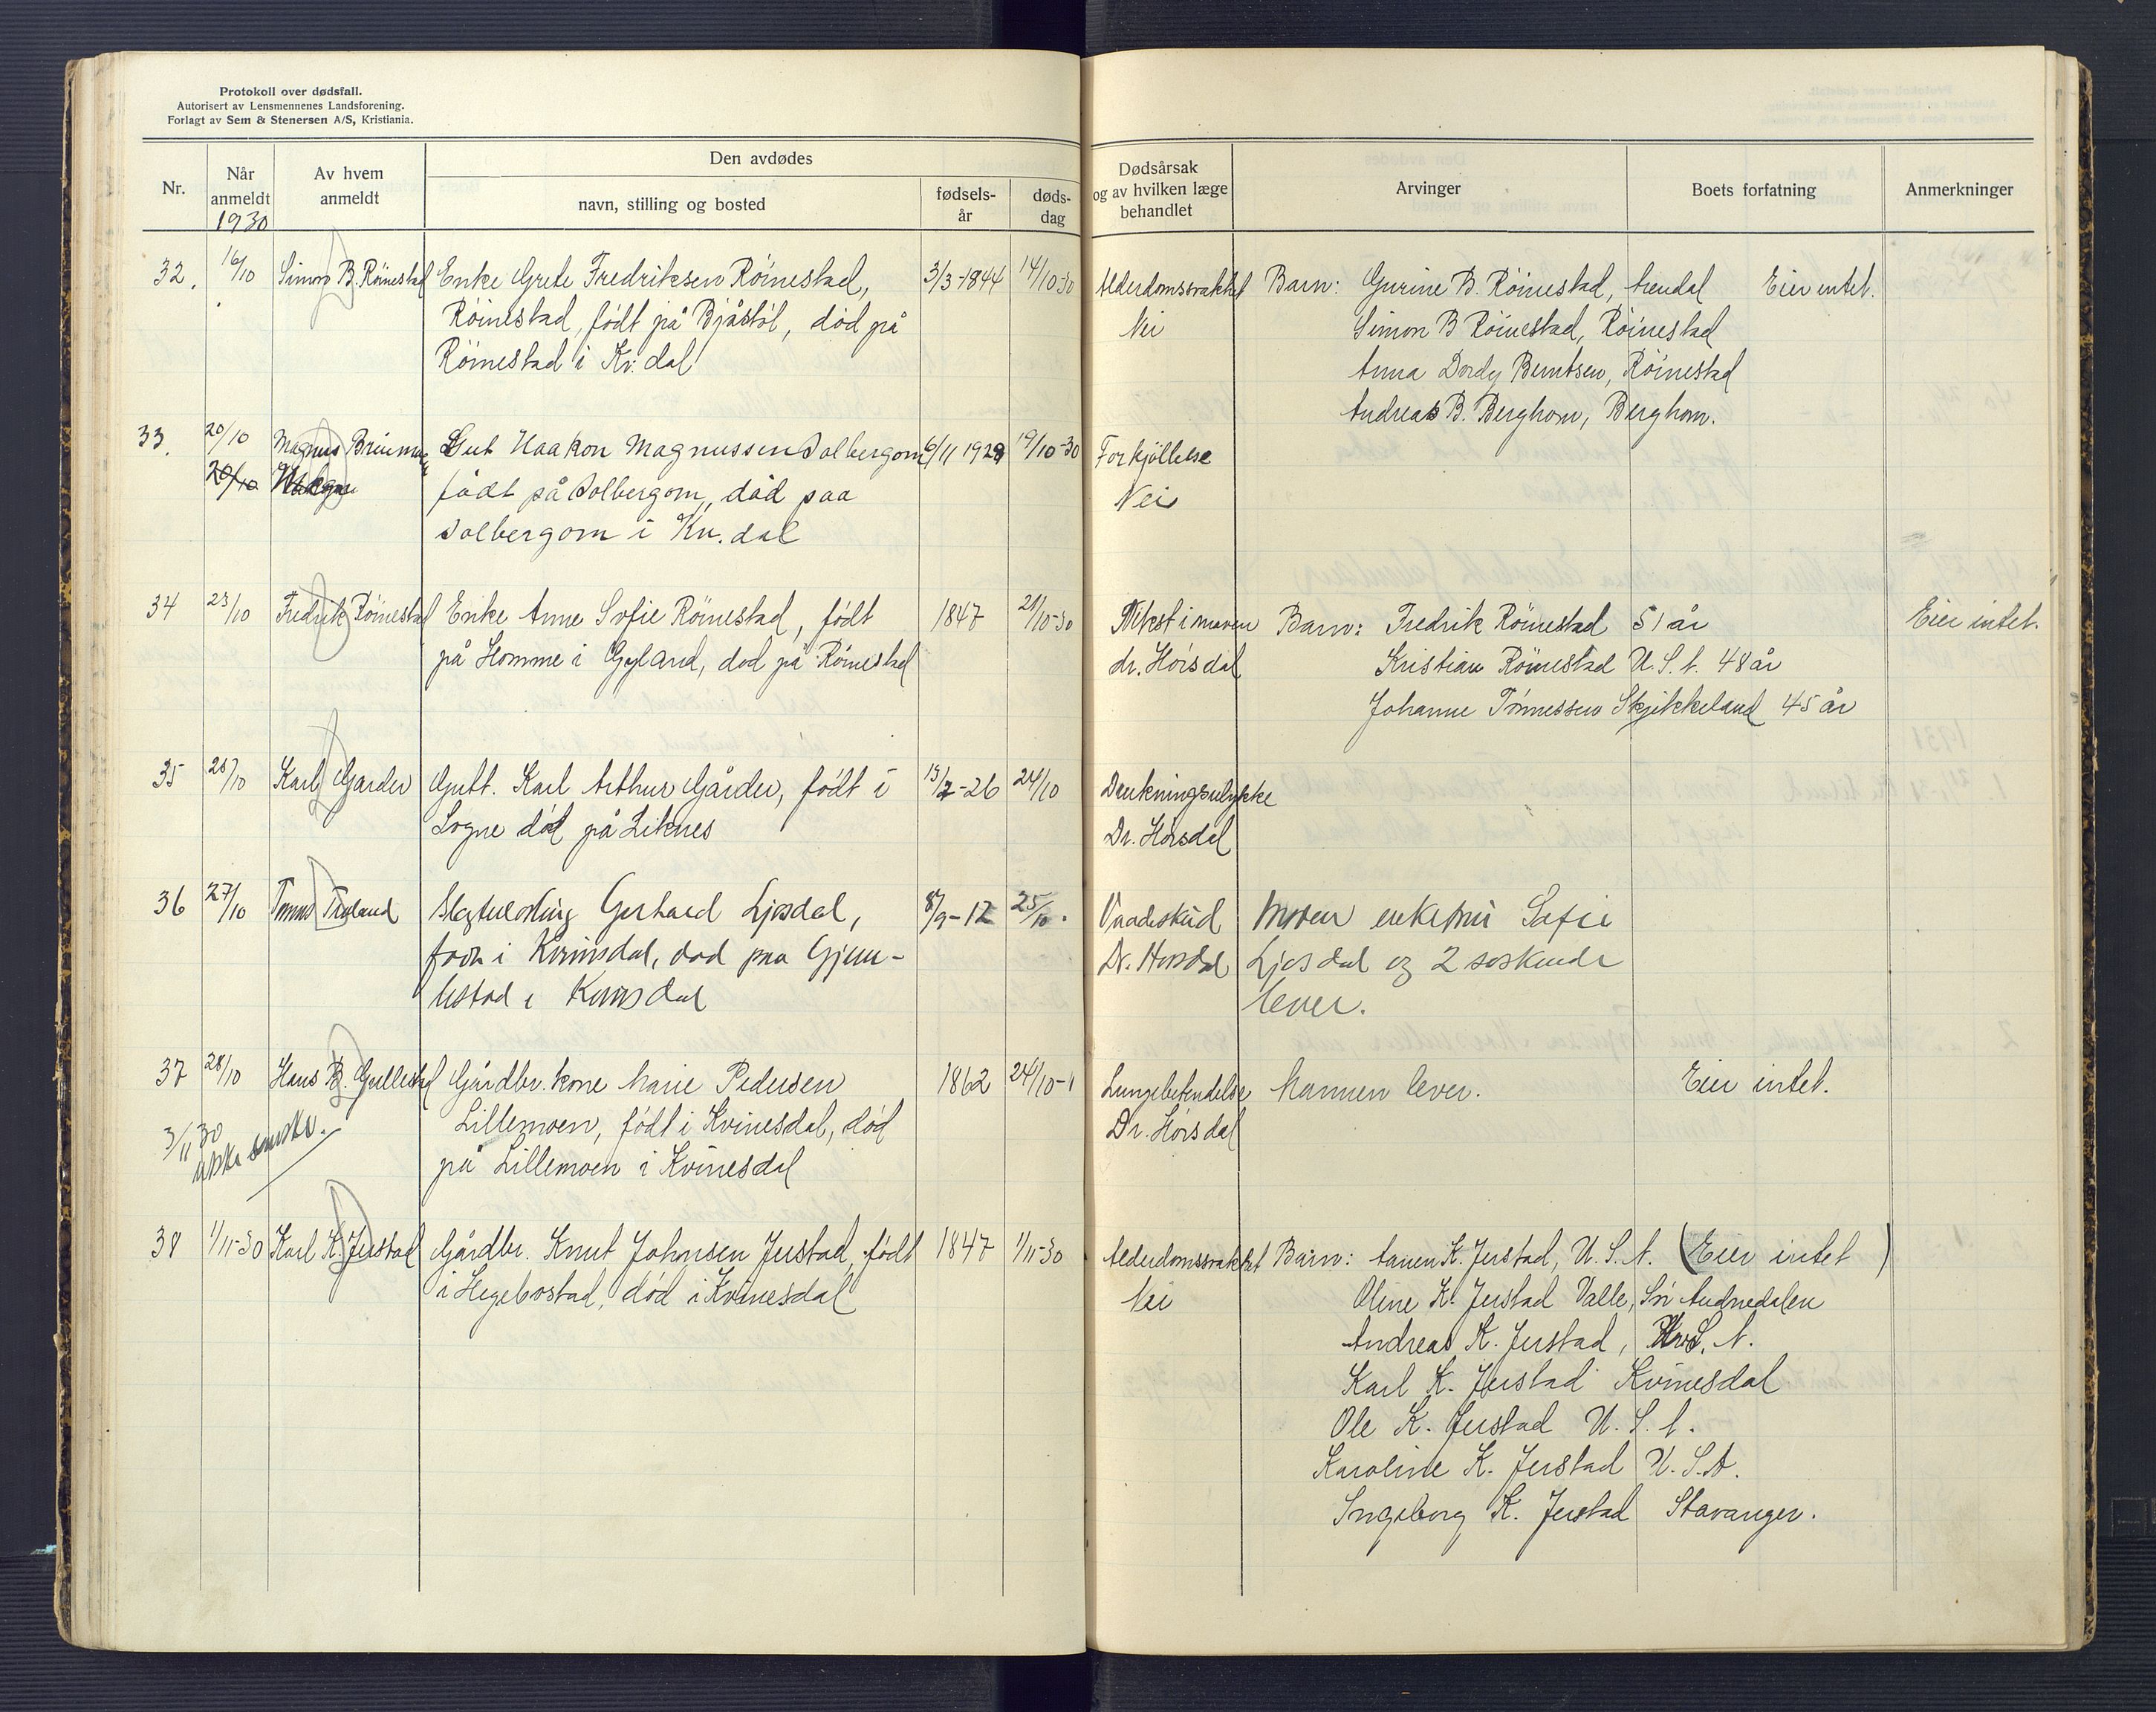 Protokoll over dødsfall.
Autorisert av Lensmennenes Landsforening.
Forlagt av Sem & Stenersen A/S, Kristiania.
Nr.
Når anmeldt
1930
Av hvem anmeldt
Den avdødes
navn, stilling og bosted
fødsels-år
døds-dag
Dødsårsak og av hvilken læge behandlet
Arvinger
Boets forfatning
Anmerkninger
32. 16/10 Simon B. Röinestad Enke Grete Fredriksen Röinestad, 3/3-1844 14/10-30 Alderdomssvakhet Barn: Gurine B. Röinestad, Arendal Eier intet.
Röinestad, født på Bjåstöl, död på Nei Simon B Röinestad, Röinestad
Röinestad i Kv. dal Anna Dordy Berntsen, Röinestad
Andreas B. Berghom, Berghom.
33. 20/10 Magnus Gut Haakon Magnussen Solbergom 6/11 1929 19/10-30 Forkjöllelse
20/10 født på Solbergom, död paa Nei
Solbergom i Kv. dal
34 23/10 Fredrik Röinestad Enke Anne Sofie Röinestad, født 1847 21/10-30 i maven Barn: Fredrik Röinestad 51 år Eier intet.
på Homme i Gyland, död på Röinestad dr. Hörsdal Kristian Röinestad U.S.A. 48 år
Johanne Tönnessen Skjekkeland 45 år
35 25/10 Karl Gårder Gutt. Karl Arthur Gårder, født i 15/2-26 24/10 Drukningsulykke
Sogne död på Liknes Dr. Hörsdal
36 27/10 Træland Gerhard Ljosdal, 8/9-12 25/10. Vaadeskud Moren Sofie
i Kvinesdal, död paa Gjem- Dr. Hörsdal Ljosdal og 2 soskende
lestad i Kvinesdal lever.
37 28/10 Hans B. Gullestad Gårdbr. kone Marie Pedersen 1862 24/10- Lungebetendelse Mannen lever. Eier intet.
3/11 30 Lillemoen, født i Kvinesdal, död Dr. Hörsdal
på Lillemoen i Kvinesdal
38 1/11-30 Karl K. Jerstad Gårdbr. Knut Johnsen Jerstad, født 1847 1/11-30 Alderdomssvakhet Barn: K. Jerstad, U.S.A. (Eier intet)
i Hegebostad, död i Kvinesdal Nei Oline K. Jerstad Valle, Sör Audnedalen
Andreas K. Jerstad, U.S.A.
Karl K. Jerstad Kvinesdal
Ole K. Jerstad U.S.A.
Karoline K. Jerstad U.S.A.
Ingeborg K. Jerstad Stavanger.